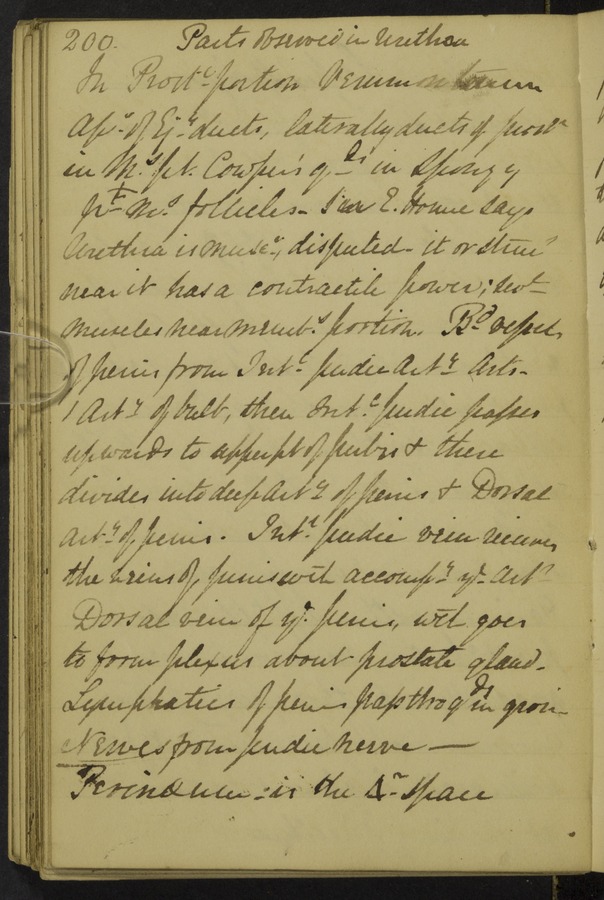 200. Parts observed in Urethra
In Prostc portion Verumontanum
Aps. of Ejr. ducts, laterally ducts of prost
in Ms. pt. Cowper's gds in Spongy
pt Ms. follicles - Sir E. Home says
Urethra is musc., disputed - it or struc
near it has a contractile power;
muscles near membs. portion. Bd vessels
of penis from Intl. pudic Arty. Arts -
1 Arty of bulb, then Intl. pudic passes
upwards to upper pt of pubis & there
divides into deep Arty of penis & Dorsal
arty. of penis. Intl. pudic vein receives
the veins of penis wch accompy ye. art
Dorsal vein of ye. penis, wch goes
to form plexus about prostate gland -
Lymphatics of penis pass throg gds in groin
Nerves from pudic nerve —
Perinæum - is the Δr. space